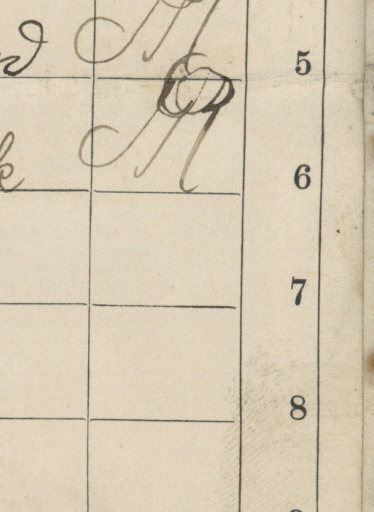 d M 5
k M 6
7
8